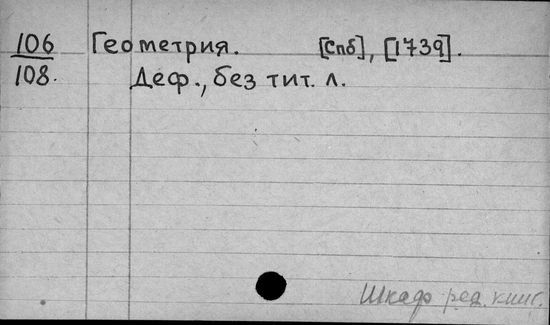 106 Геометрия. [Спб], [1739].
108. Деф., без тит. л.
Шкаф ред. книг.